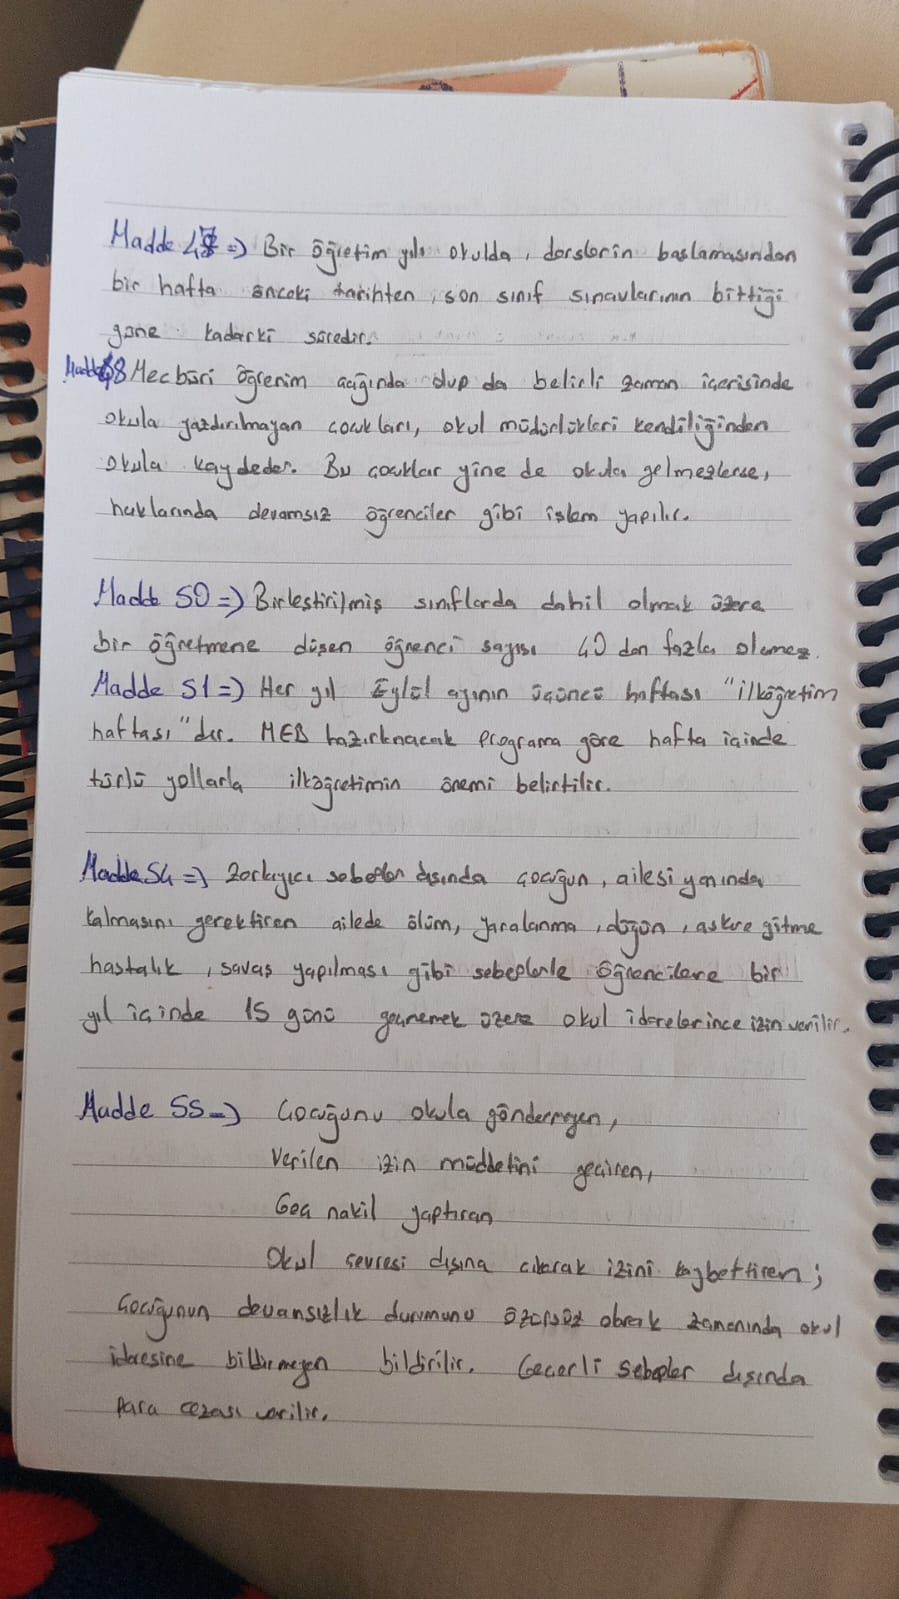 Madde 47 => Bir öğretim yılı okulda, derslerin başlamasından
bir hafta önceki tarihten, son sınıf sınavlarının bittiği
güne kadarki süredir.
Madde 48 Mecburi öğrenim çağında olup da belirli zaman içerisinde
okula yazdırılmayan çocukları, okul müdürlükleri kendiliğinden
okula kaydeder. Bu çocuklar yine de okula gelmezlerse,
haklarında devamsız öğrenciler gibi işlem yapılır.
Madde 50 => Birleştirilmiş sınıflarda dahil olmak üzere
bir öğretmene düşen öğrenci sayısı 40 dan fazla olamaz.
Madde 51 => Her yıl Eylül ayının üçüncü haftası "ilköğretim
haftası"dır. MEB hazırlanacak programa göre hafta içinde
türlü yollarla ilköğretimin önemi belirtilir.
Madde 54 => Zorlayıcı sebepler dışında çocuğun, ailesi yanında
kalmasını gerektiren ailede ölüm, yaralanma, düğün, askere gitme
hastalık, savaş yapılması gibi sebeplerle öğrencilere bir
yıl içinde 15 günü geçmemek üzere okul idarelerince izin verilir.
Madde 55 => Çocuğunu okula göndermeyen,
Verilen izin müddetini geçiren,
Geç nakil yaptıran
Okul çevresi dışına çıkarak izini kaybettiren;
Çocuğunun devamsızlık durumunu özürsüz olarak zamanında okul
idaresine bildirmeyen bildirilir. Geçerli sebepler dışında
para cezası verilir.